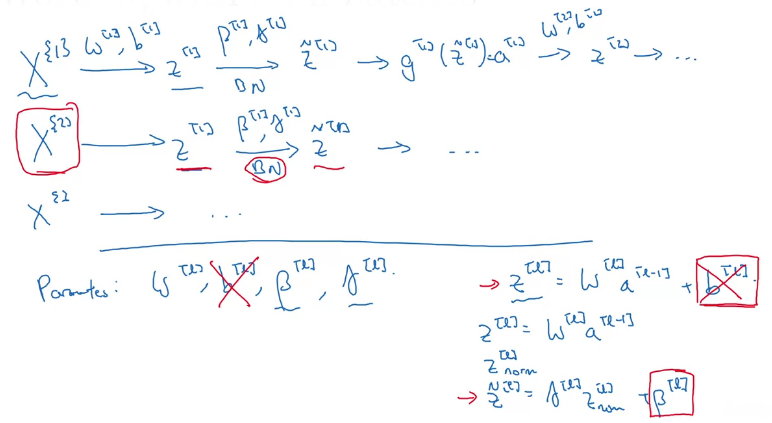 X^{1} W^[1], b^[1] → z^[1] β^[1], γ^[1] → BN z̃^[1] → g^[1](z̃^[1]) = a^[1] → W^[2], b^[2] z^[2] → ...
X^{2} → z^[1] β^[1], γ^[1] → BN z̃^[1] → ...
X^{3} → ...
Parameters: W^[l], b^[l], β^[l], γ^[l].
→ z^[l] = W^[l] a^[l-1] + b^[l]
z^[l] = W^[l] a^[l-1]
z^[l]_norm
→ z̃^[l] = γ^[l] z^[l]_norm + β^[l]